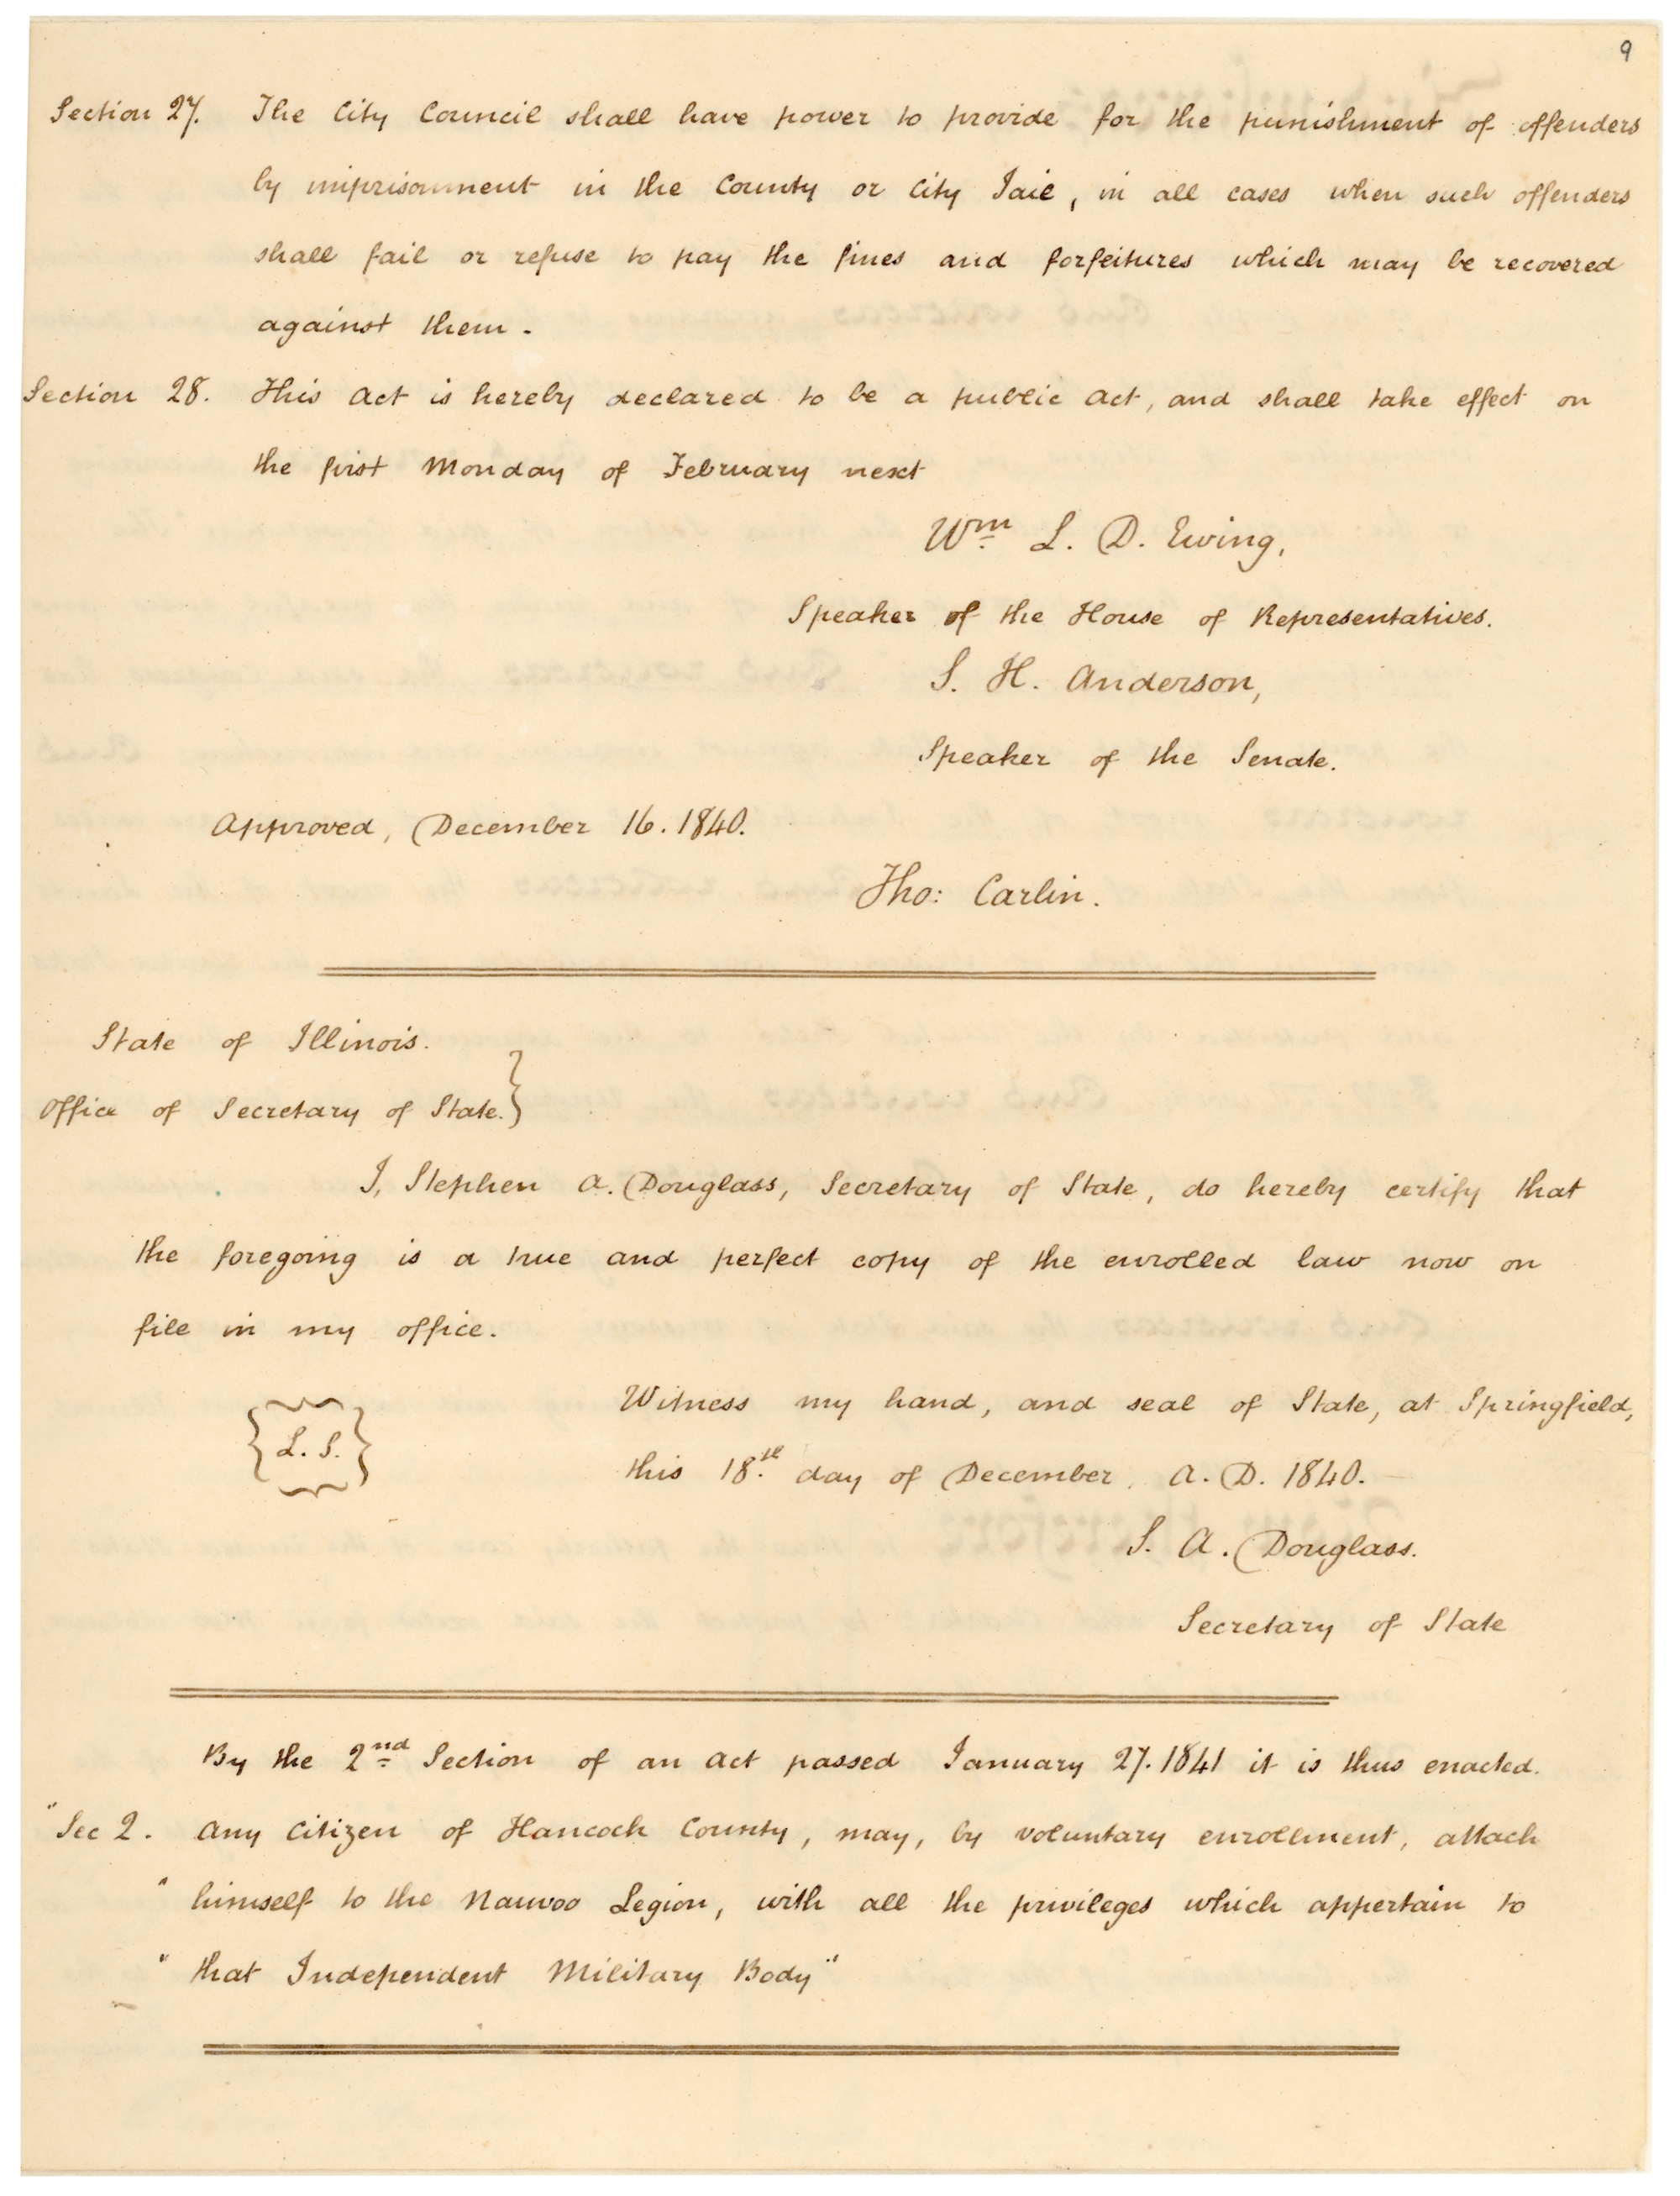 9
Section 27. The City Council shall have power to provide for the punishment of offenders
by imprisonment in the County or City Jail, in all cases when such offenders
shall fail or refuse to pay the fines and forfeitures which may be recovered
against them.
Section 28. This Act is hereby declared to be a public Act, and shall take effect on
the first Monday of February next
Wm. L. D. Ewing,
Speaker of the House of Representatives.
S. H. Anderson,
Speaker of the Senate.
Approved, December 16. 1840.
Tho: Carlin.
State of Illinois.
Office of Secretary of State.}
I, Stephen A. Douglass, Secretary of State, do hereby certify that
the foregoing is a true and perfect copy of the enrolled law now on
file in my office.
Witness my hand, and seal of State, at Springfield,
{L. S.}
this 18.th day of December, A. D. 1840.
S. A. Douglass.
Secretary of State
By the 2nd Section of an Act passed January 27. 1841 it is thus enacted.
"Sec 2. Any Citizen of Hancock County, may, by voluntary enrollment, attach
" himself to the Nauvoo Legion, with all the privileges which appertain to
" that Independent Military Body"